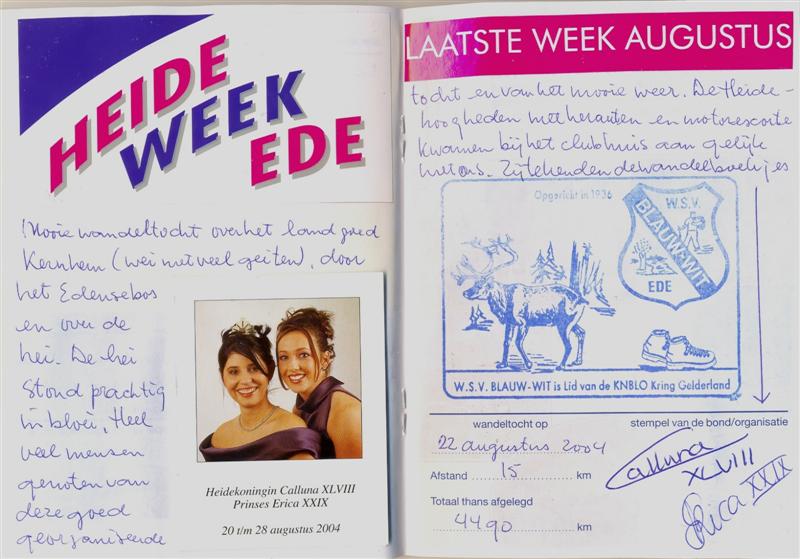 HEIDE
WEEK
EDE
Mooie wandeltocht over het landgoed
Kernhem (wei met veel geiten), door
het Edensebos
en over de
hei. De hei
stond prachtig
in bloei. Heel
veel mensen
genoten van
deze goed
georganiseerde
Heidekoningin Calluna XLVIII
Prinses Erica XXIX
20 t/m 28 augustus 2004
LAATSTE WEEK AUGUSTUS
tocht en van het mooie weer. De Heide-
hoogheden met herauten en motorescorte
kwamen bij het clubhuis aan gelijk
met ons. Zij tekenden de wandelboekjes
Opgericht in 1936
W.S.V.
BLAUW-WIT
EDE
W.S.V. BLAUW-WIT is Lid van de KNBLO Kring Gelderland
wandeltocht op
stempel van de bond/organisatie
22 augustus 2004
Afstand 15 km
Totaal thans afgelegd
4490 km
Calluna
XLVIII
Erica XXIX